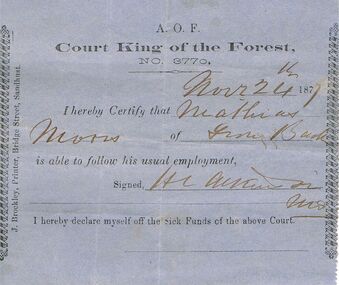 A. O. F.
Court King of the Forest,
NO. 3770,
Novr 24th 187
I hereby Certify that Mathias
Moors of Bark
is able to follow his usual employment,
Signed, H
I hereby declare myself off the Sick Funds of the above Court.
J. Brockley, Printer, Bridge Street, Sandhurst.